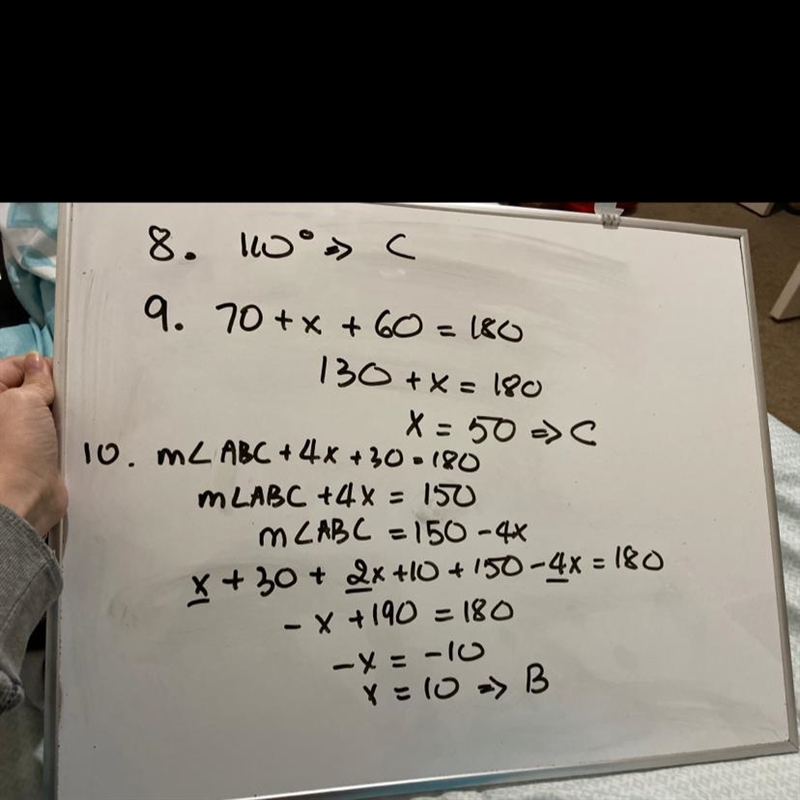 8. 110° => C
9. 70 + x + 60 = 180
130 + x = 180
x = 50 => C
10. m∠ABC + 4x + 30 = 180
m∠ABC + 4x = 150
m∠ABC = 150 - 4x
x + 30 + 2x + 10 + 150 - 4x = 180
- x + 190 = 180
-x = -10
x = 10 => B